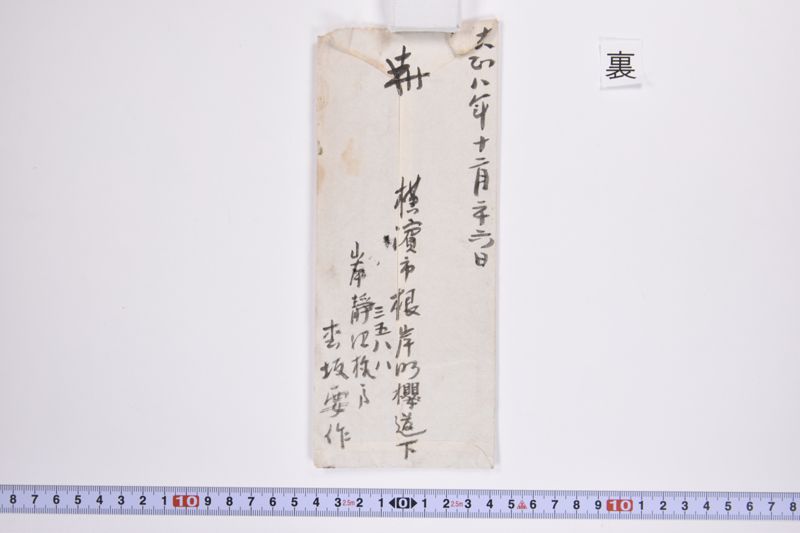 裏
大正八年十二月二十六日
横濱市根岸町櫻道下
三五八八
静江様方
坂要作
8 7 6 5 4 3 2 1 10 9 8 7 6 5 4 3 2.5m 2 1 0 1 2 2.5m 3 4 5 6 7 8 9 10 1 2 3 4 5 6 7 8